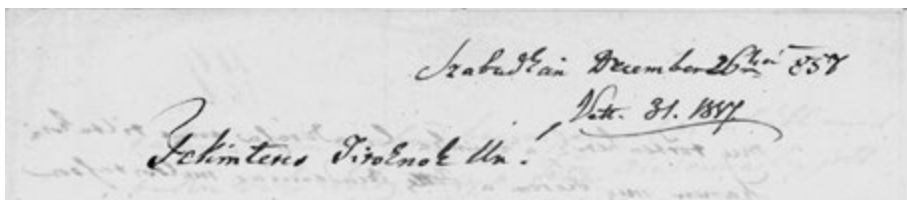 Szabadkán December 26kán 857
Vett. 31. 1857
Tekintetes Titoknok Úr!